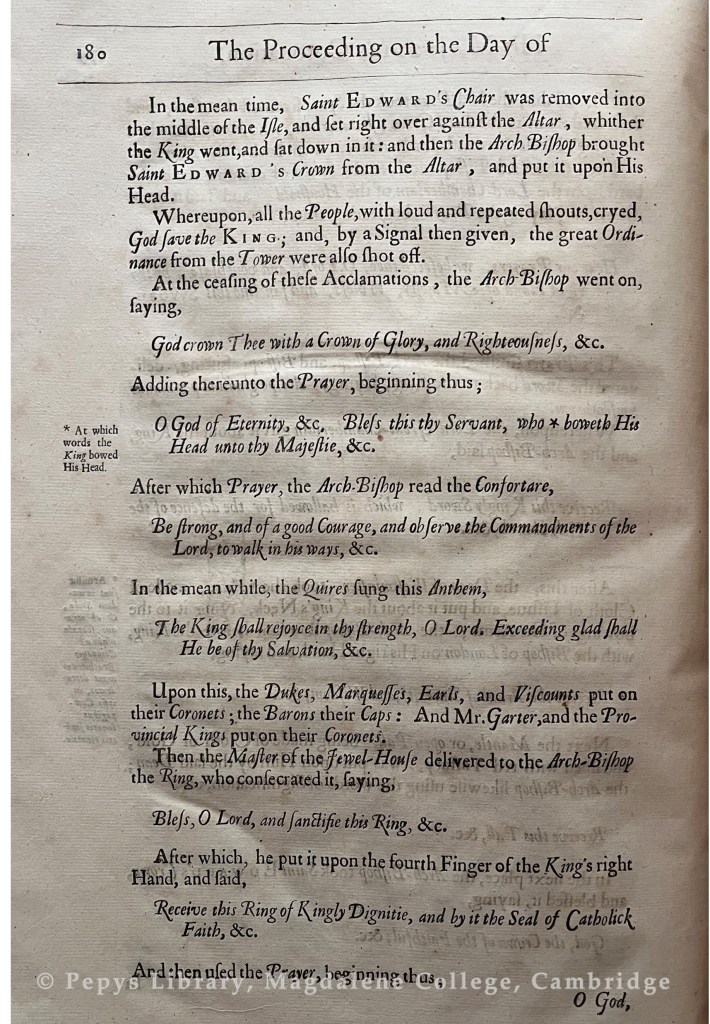 180 The Proceeding on the Day of
In the mean time, Saint EDWARD's Chair was removed into
the middle of the Iſle, and ſet right over againſt the Altar, whither
the King went, and ſat down in it: and then the Arch Biſhop brought
Saint EDWARD's Crown from the Altar, and put it upon His
Head.
Whereupon, all the People, with loud and repeated ſhouts, cryed,
God ſave the KING; and, by a Signal then given, the great Ordi-
nance from the Tower were alſo ſhot off.
At the ceaſing of theſe Acclamations, the Arch-Biſhop went on,
ſaying,
God crown Thee with a Crown of Glory, and Righteouſneſs, &c.
Adding thereunto the Prayer, beginning thus;
O God of Eternity, &c. Bleſs this thy Servant, who * boweth His
Head unto thy Majeſtie, &c.
* At which
words the
King bowed
His Head.
After which Prayer, the Arch-Biſhop read the Confortare,
Be ſtrong, and of a good Courage, and obſerve the Commandments of the
Lord, to walk in his ways, &c.
In the mean while, the Quires ſung this Anthem,
The King ſhall rejoyce in thy ſtrength, O Lord. Exceeding glad ſhall
He be of thy Salvation, &c.
Upon this, the Dukes, Marqueſſes, Earls, and Viſcounts put on
their Coronets; the Barons their Caps: And Mr. Garter, and the Pro-
vincial Kings put on their Coronets.
Then the Maſter of the Jewel-Houſe delivered to the Arch-Biſhop
the Ring, who conſecrated it, ſaying;
Bleſs, O Lord, and ſanctifie this Ring, &c.
After which, he put it upon the fourth Finger of the King's right
Hand, and ſaid,
Receive this Ring of Kingly Dignitie, and by it the Seal of Catholick
Faith, &c.
And then uſed the Prayer, beginning thus,
© Pepys Library, Magdalene College, Cambridge
O God,